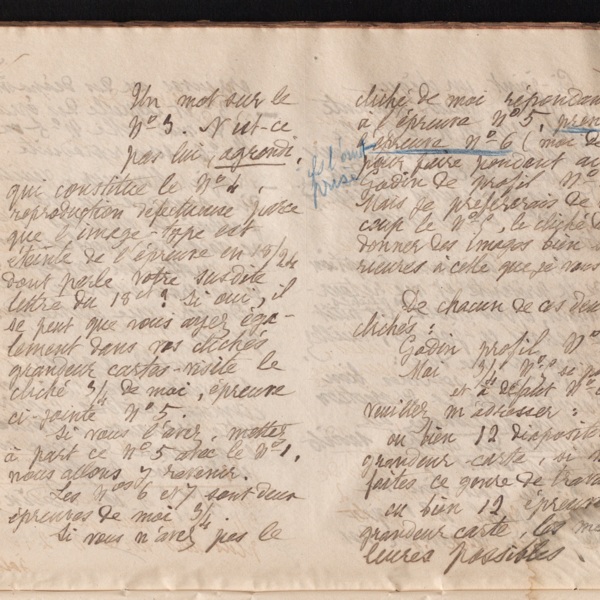 Un mot sur le
N° 3. N'est-ce
pas lui, agrandi,
qui constitue le N° 4,
reproduction défectueuse parce
que l'image-type est
de l'épreuve en 18/24
dont parle votre susdite
lettre du 18 et? Si oui, il
se peut que vous ayez éga-
lement dans vos clichés
grandeur cartes-visite le
cliché 3/4 de moi, épreuve
ci-jointe N° 5.
Si vous l'avez, mettez
à part ce N° 5 avec le N° 1,
nous allons y revenir.
Les Nos 6 et 7 sont deux
épreuves de moi 3/4.
Si vous n'avez pas le
cliché de moi répondan
à l'épreuve N° 5, pren
l'épreuve N° 6 (moi de
pour faire pendant au
Godin de profil N°
Mais je préférerais de
coup le N° 5, le cliché d
donner des images bien
rieures à celle que je vous
De chacun de ces deux
clichés:
Godin profil N°
Moi 3/4 N°
et à défaut N°
veuillez m'adresser:
ou bien 12
grandeur carte, si
faites ce genre de trava
ou bien 12 épreuve
grandeur carte, les me
leures possibles.